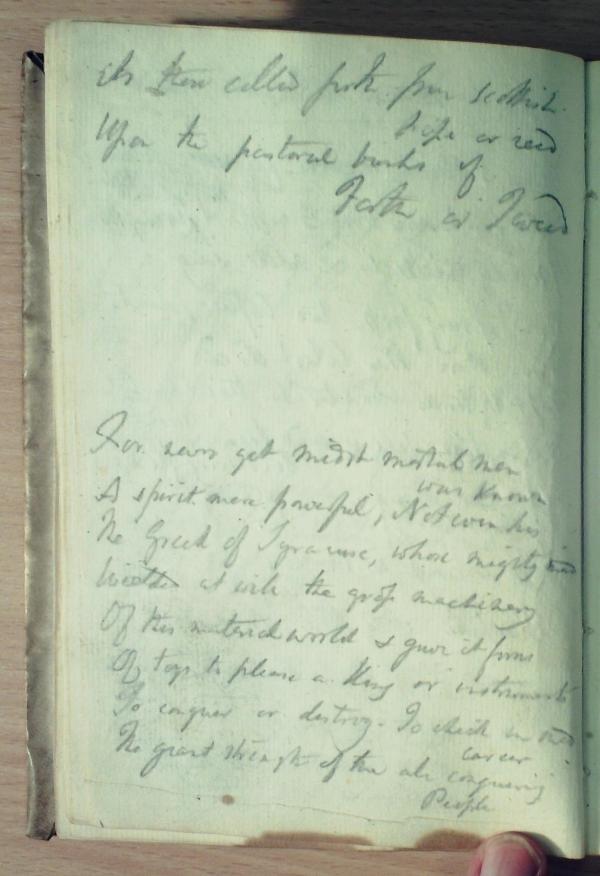 its then called forth from Scottish
pipe or reed
Upon the pastoral banks of
Forth or Tweed
For never yet midst mortal men
was known
A spirit more powerful, Not even his
The Greek of Syracuse, whose mighty mind
Wielded at will the gross machinery
Of this material world & gave it forms
Of toys to please a King or instruments
To conquer or destroy. To check in
career
The giant strength of the all conquering
People